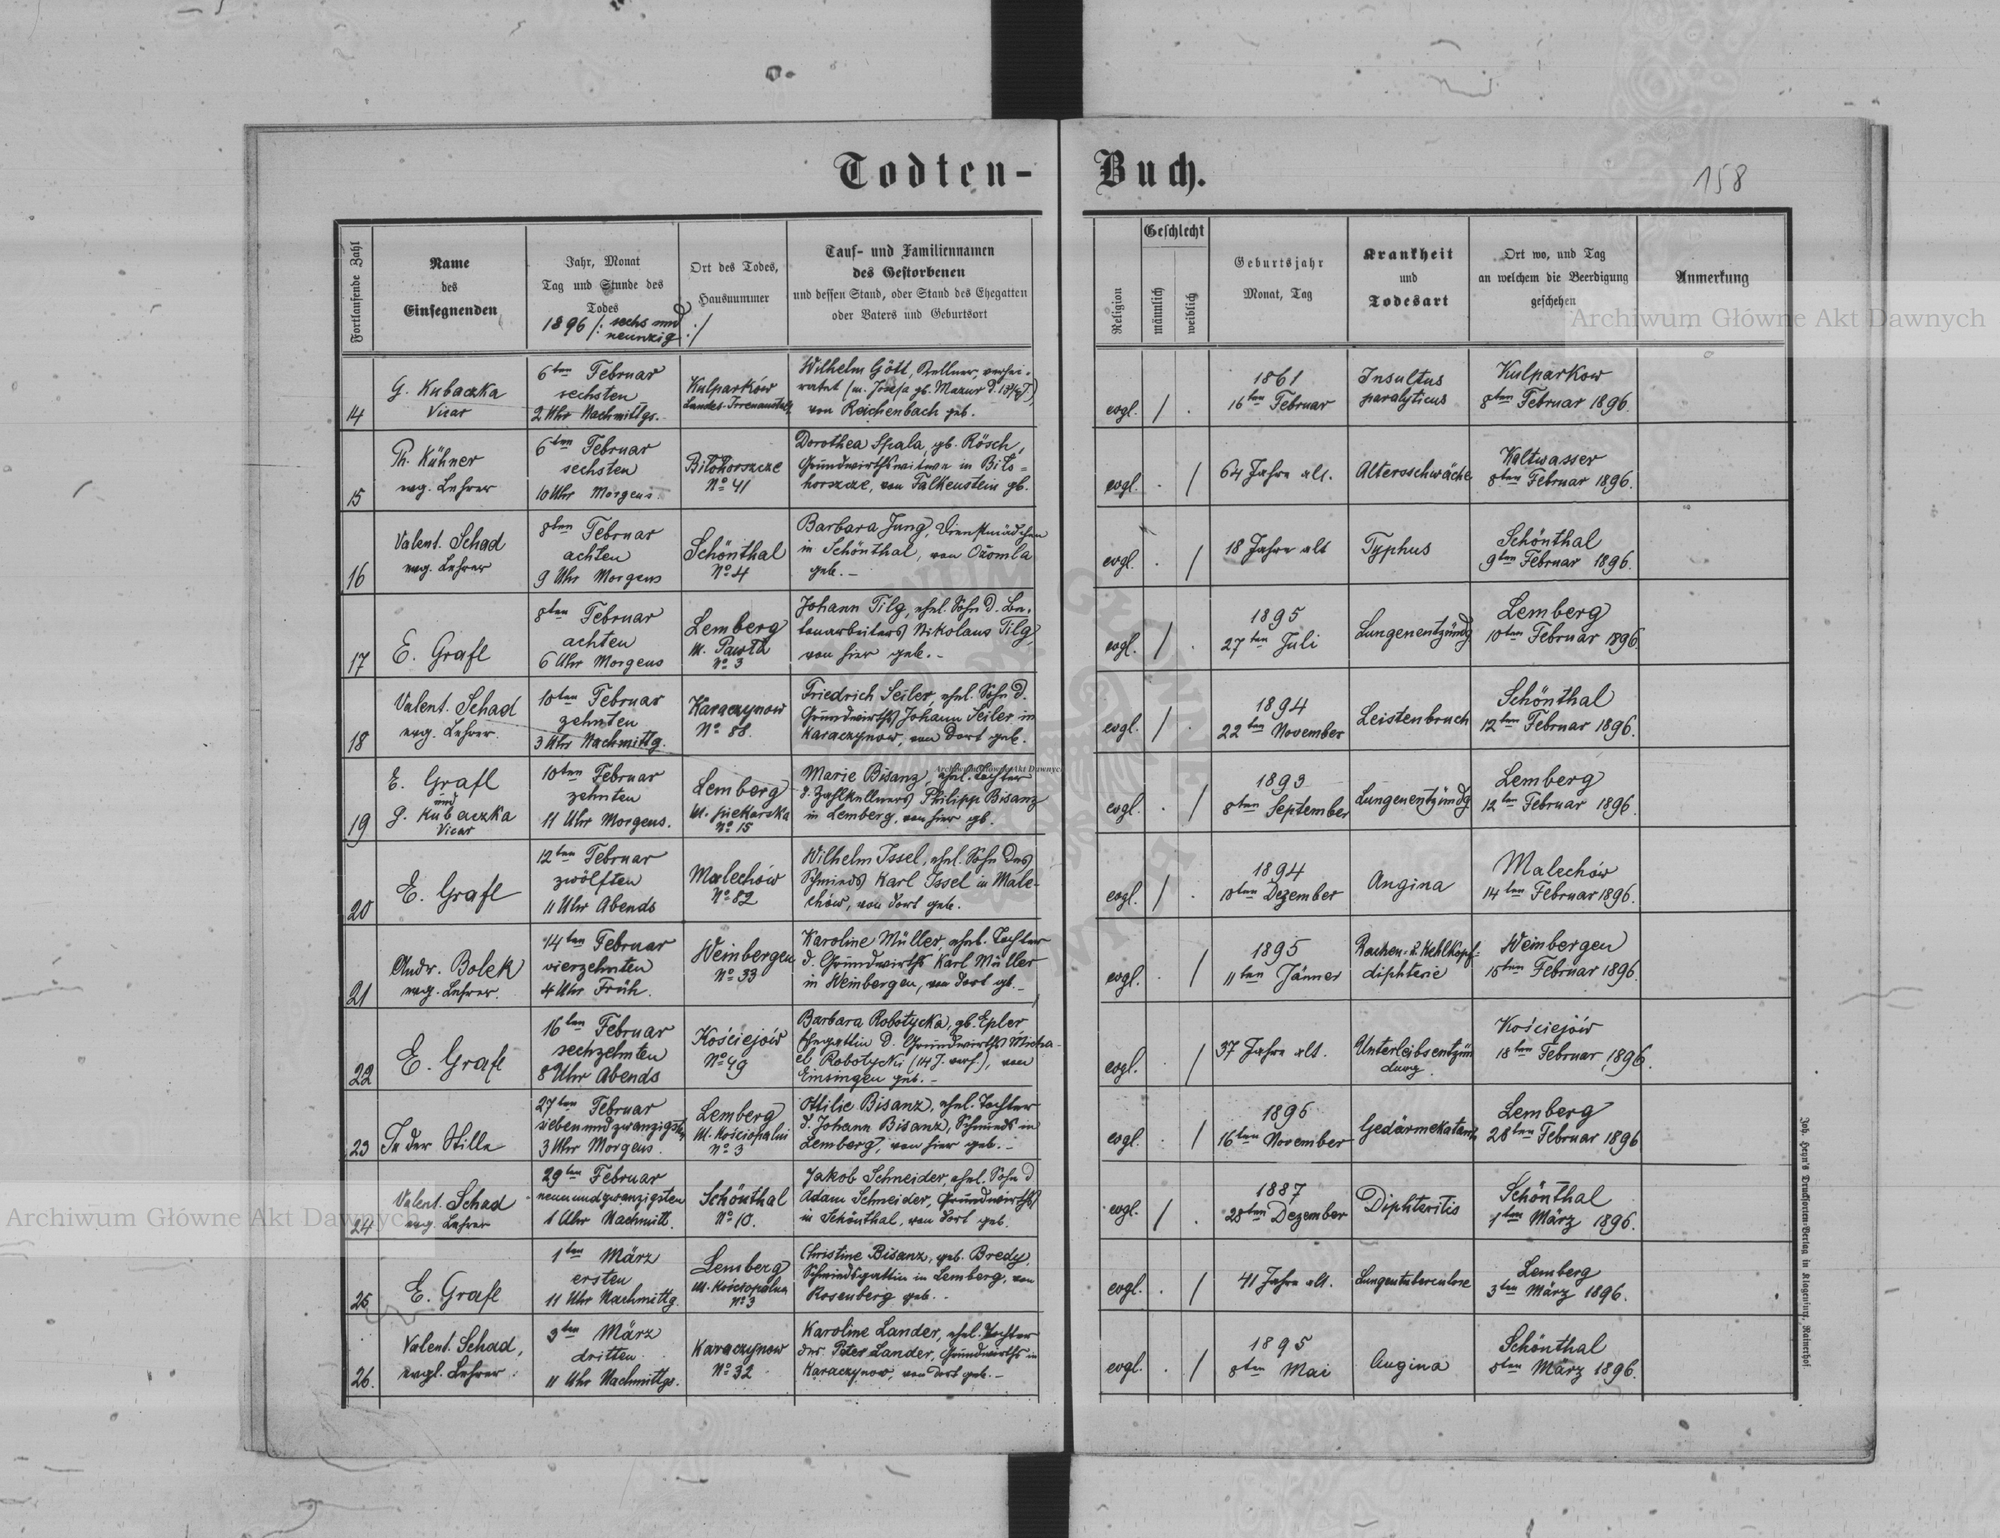 Todten- Buch.
158
Fortlaufende Zahl
Name
des
Einsegnenden
Jahr, Monat
Tag und Stunde des
Todes
1896 /: sechs und
neunzig :/
Ort des Todes,
Hausnummer
Tauf- und Familiennamen
des Gestorbenen
und dessen Stand, oder Stand des Ehegatten
oder Vaters und Geburtsort
Religion
Geschlecht
männlich
weiblich
Geburtsjahr
Monat, Tag
Krankheit
und
Todesart
Ort wo, und Tag
an welchem die Beerdigung
geschehen
Anmerkung
Archiwum Główne Akt Dawnych
14
G. Kubaczka
Vicar
6ten Februar
sechsten
2 Uhr Nachmittgs.
Kulparków
Landes-Irrenanstalt
Wilhelm Gött, Kellner, verhei-
ratet (m. Josefa gb. Mazur d.
von Reichenbach geb.
evgl. / .
1861
16ten Februar
Insultus
paralyticus
Kulparkow
8ten Februar 1896.
15
Th. Kühner
evg. Lehrer
6ten Februar
sechsten
10 Uhr Morgens.
Biłohorszcze
No 41
Dorothea Spala, gb. Rösch,
Grundwirthswitwe in Biło=
horszcze, von Falkenstein gb.
evgl. . /
64 Jahre alt.
Altersschwäche
Kaltwasser
8ten Februar 1896.
16
Valent. Schad
evg. Lehrer
8ten Februar
achten
9 Uhr Morgens
Schönthal
No 4
Barbara Jung, Dienstmädchen
in Schönthal, von Ożomla
geb. -
evgl. . /
18 Jahre alt
Typhus
Schönthal
9ten Februar 1896.
17
E. Grafl
8ten Februar
achten
6 Uhr Morgens
Lemberg
ul. Pawła
No 3
Johann Tilg, ehel. Sohn d. Bo-
tenarbeiters Nikolaus Tilg,
von hier geb. -
evgl. / .
1895
27ten Juli
Lungenentzündg
Lemberg
10ten Februar 1896.
18
Valent. Schad
evg. Lehrer.
10ten Februar
zehnten
3 Uhr Nachmittg.
Karaczynow
No 88.
Friedrich Seiler, ehel. Sohn d.
Grundwirths Johann Seiler in
Karaczynow, von dort geb.
evgl. / .
1894
22ten November
Leistenbruch
Schönthal
12ten Februar 1896.
19
E. Grafl
und
G. Kubaczka
Vicar
10ten Februar
zehnten
11 Uhr Morgens.
Lemberg
ul. Piekarska
No 15
Marie Bisanz, ehel. Tochter
d. Zahlkellners Philipp Bisanz
in Lemberg, von hier gb.
Archiwum Główne Akt Dawnych
evgl. . /
1893
8ten September
Lungenentzündg
Lemberg
12ten Februar 1896.
20
E. Grafl
12ten Februar
zwölften
11 Uhr Abends
Malechów
No 82
Wilhelm Issel, ehel. Sohn des
Schmieds Karl Issel in Male-
chów, von dort geb.
evgl. / .
1894
Dezember
Angina
Malechów
14ten Februar 1896.
21
Andr. Bolek
evg. Lehrer.
14ten Februar
vierzehnten
4 Uhr Früh.
Weinbergen
No 33
Karoline Müller, ehel. Tochter
d. Grundwirths Karl Müller
in Weinbergen, von dort gb. -
evgl. . /
1895
11ten Jänner
Rachen- u. Kehlkopf=
diphterie
Weinbergen
Februar 1896.
22
E. Grafl
16ten Februar
sechzehnten
8 Uhr Abends
Kościejów
No 49
Barbara Robotycka, gb. Epler
Ehegattin d. Grundwirths Micha-
el Robotycki (14 J. verh.), von
Einsingen geb. -
evgl. . /
37 Jahre alt.
Unterleibsentzün
dung
Kościejów
18ten Februar 1896.
23
In der Stille
27ten Februar
siebenundzwanzigsten
3 Uhr Morgens.
Lemberg
No 3
Ottilie Bisanz, ehel. Tochter
d. Johann Bisanz, Schmieds in
Lemberg, von hier geb. -
evgl. . /
16ten November
Gedärmekatarrh
Lemberg
28ten Februar 1896
24
Valent. Schad
evg. Lehrer
29ten Februar
neunundzwanzigsten
1 Uhr Nachmitt.
Schönthal
No 10.
Jakob Schneider, ehel. Sohn d
Adam Schneider, Grundwirths
in Schönthal, von dort geb.
evgl. / .
1887
28ten Dezember
Diphteritis
Schönthal
1ten März 1896.
25
E. Grafl
1ten März
ersten
11 Uhr Nachmittg.
Lemberg
No 3
Christine Bisanz, geb. Bredy,
Schmiedsgattin in Lemberg, von
Rosenberg geb. -
evgl. . /
41 Jahre alt.
Lungentuberculose
Lemberg
3ten März 1896.
26.
Valent. Schad,
evgl. Lehrer.
3ten März
dritten
11 Uhr Nachmittgs.
Karaczynow
No 32
Karoline Lander, ehel. Tochter
des Peter Lander, Grundwirths in
Karaczynow, von dort geb. -
evgl. . /
1895
8ten Mai
Angina
Schönthal
März 1896.
Archiwum Główne Akt Dawnych
Joh. Heyn's Drucksorten-Verlag in Klagenfurt, Rainerhof.